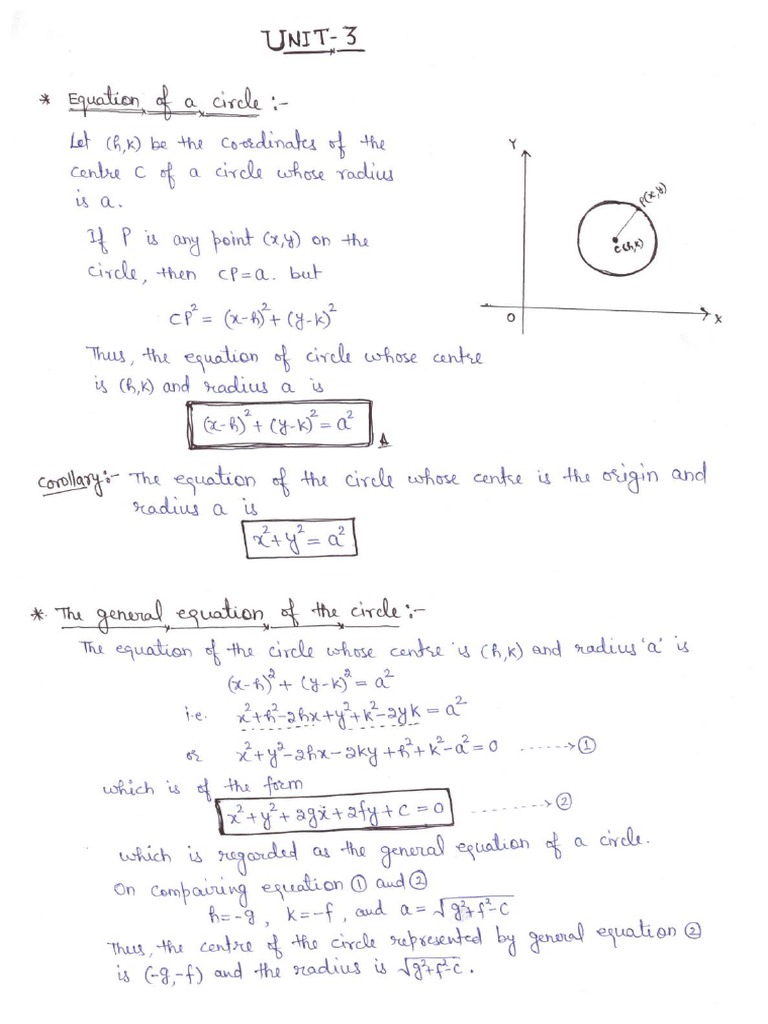 UNIT-3
* Equation of a circle :-
Let (h,k) be the co-ordinates of the
centre C of a circle whose radius
is a.
If P is any point (x,y) on the
circle, then CP=a. but
CP² = (x-h)² + (y-k)²
Thus, the equation of circle whose centre
is (h,k) and radius a is
(x-h)² + (y-k)² = a²
Y
P(x,y)
C(h,k)
O
X
Corollary:- The equation of the circle whose centre is the origin and
radius a is
x² + y² = a²
* The general equation of the circle :-
The equation of the circle whose centre is (h,k) and radius 'a' is
(x-h)² + (y-k)² = a²
i.e. x²+h²-2hx+y²+k²-2yk = a²
or x²+y²-2hx-2ky+h²+k²-a²=0 ......→ ①
which is of the form
x²+y²+2gx+2fy+c=0 ........→ ②
which is regarded as the general equation of a circle.
On compairing equation ① and ②
h=-g, k=-f, and a=√g²+f²-c
Thus, the centre of the circle represented by general equation ②
is (-g,-f) and the radius is √g²+f²-c.